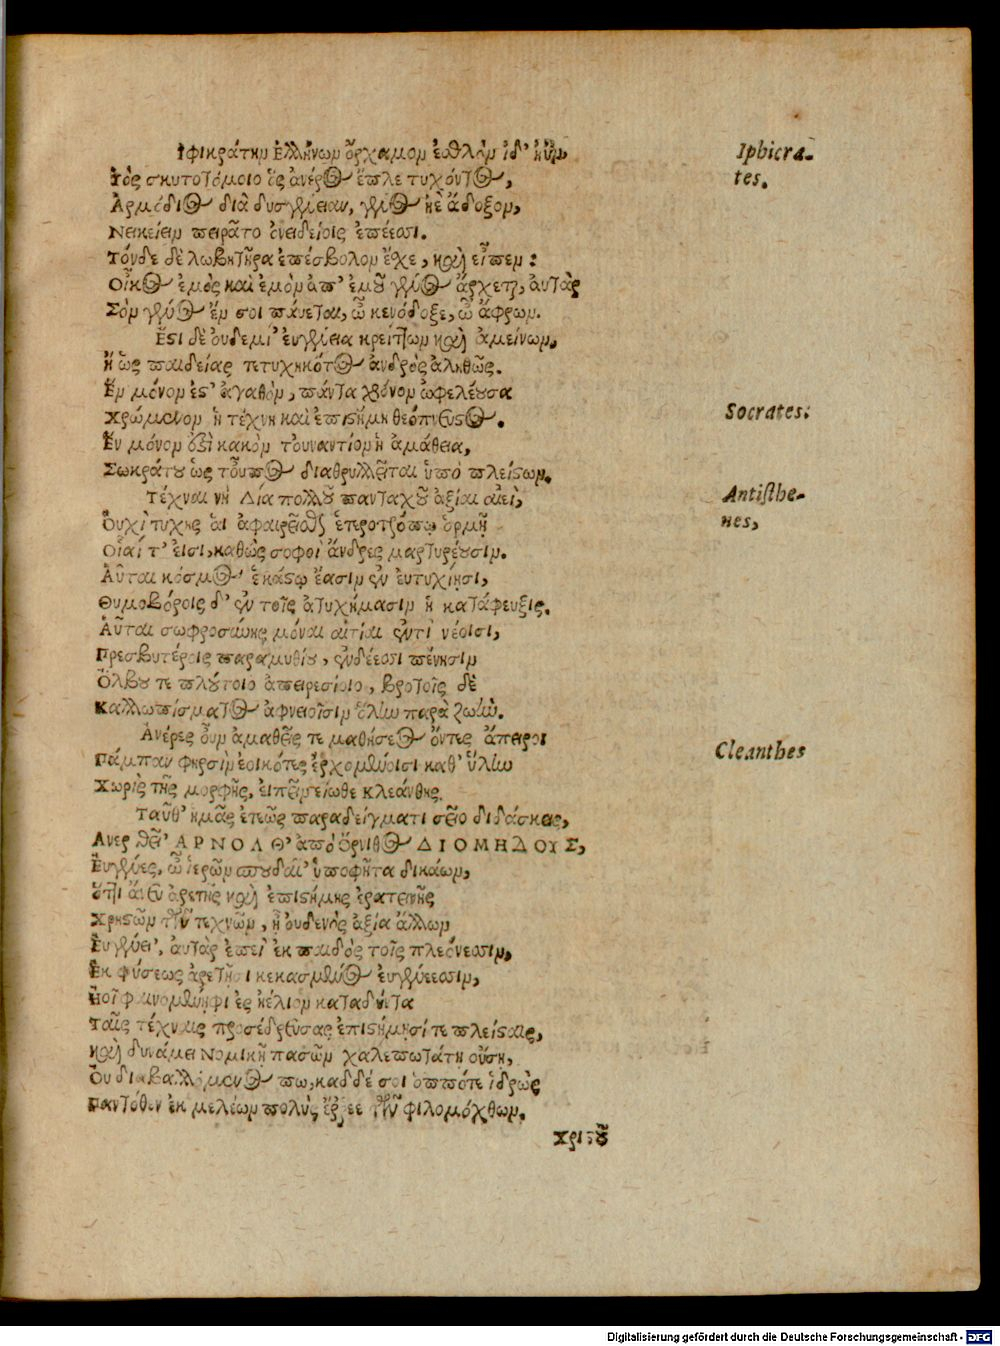 Ἰφικράτην Ἑλλήνων ὄρχαμον ἐσθλὸν ἰδ' ἠῢν, Iphicra-
Τὸς σκυτοτόμοιο ὃς ἀνέρος ἔπλε τυχόντος, tes.
Ἁρμόδιος διὰ δυσγένειαν, γένος κὲ ἄδοξον,
Νεικείειν πειρᾶτο ὀνειδείοις ἐπέεσσι.
Τόνδε δὲ λωβητῆρα ἐπέσβολον ἔχε, καὶ εἶπεν:
Οἶκος ἐμὸς καὶ ἐμὸν ἀπ' ἐμοῦ γένος ἄρχεται, αὐτὰρ
Σὸν γένος ἔν σοι παύεται, ὦ κενόδοξε, ὦ ἄφρων.
Ἔστι δὲ οὐδεμί' εὐγένεια κρείττων καὶ ἀμείνων,
Ἢ ὡς παιδείας τετυχηκότος ἀνδρὸς ἀληθῶς.
Ἓν μόνον ἐστ' ἀγαθὸν, πάντα χρόνον ὠφελέουσα
Χρώμενον ἡ τέχνη καὶ ἐπιστήμη θεόπνευστος. Socrates.
Ἓν μόνον ἐστὶ κακὸν τοὐναντίον ἡ ἀμάθεια,
Σωκράτου ὡς τοὔπος διαθρυλλεῖται ὑπὸ πλείστων.
Τέχναι νὴ Δία πολλοῦ πανταχοῦ ἄξιαι αἰεὶ, Antisthe-
Οὐχὶ τύχης αἱ ἀφαιρεῖσθ' ἑτεροτρόπῳ ὁρμῇ nes,
Οἷαί τ' εἰσι, καθὼς σοφοὶ ἄνδρες μαρτυρέουσιν.
Αὗται κόσμος ἑκάστῳ ἔασιν ἐν εὐτυχίῃσι,
Θυμοβόροις δ' ἐν τοῖς ἀτυχήμασιν ἡ κατάφευξις.
Αὗται σωφροσύνης μόναι αἰτίαι ἐντὶ νέοισι,
Πρεσβυτέροις παραμυθίου, ἐνδέεσσι πένησιν
Ὄλβου τε πλούτοιο ἀπειρεσίοιο, βροτοῖς δὲ
Καλλωπίσματος ἀφνειοῖσιν ὅλην παρὰ ζωήν.
Ἀνέρες οὖν ἀμαθεῖς τε μαθήσεος ὄντες ἄπειροι
Πάμπαν θηρσὶν ἐοικότες ἐρχομένοισι καθ' ὕλην Cleanthes
Χωρὶς τῆς μορφῆς, εἰπεῖν εἴωθε Κλεάνθης.
Ταῦθ' ἡμᾶς ἐτεῶς παραδείγματι σεῖο διδάσκεις,
Ἄνερ θεῖ' ΑΡΝΟΛΘ' ἀπὸ ὄρνιθος ΔΙΟΜΗΔΟΥΣ,
Εὐγενές, ὦ ἱερῶν σπουδαῖ' ὑποφῆτα δικάων,
Ὅττι ἄνευ ἀρετῆς καὶ ἐπιστήμης ἐρατεινῆς
Χρηστῶν τῶν τεχνῶν, ἢ οὐδενὸς ἀξία ἄλλων
Εὐγένει', αὐτὰρ ἐπεὶ ἐκ παιδὸς τοῖς πλεόνεσσιν,
Ἐκ φύσεως ἀρετῇσι κεκασμένος εὐγενέεσσιν,
Ἠοῖ φαινομένηφι ἐς ἠέλιον καταδύντα
Ταῖς τέχναις προσέδρευσας ἐπιστήμῃσί τε πλείσταις,
καὶ δυνάμει Νομικῇ πασῶν χαλεπωτάτῃ οὔσῃ,
Οὐ διαβαλλόμενός πω, καδδέ σοι ὁππότε ἱδρὼς
Παντόθεν ἐκ μελέων πολὺς ἔρρεε τῶν φιλομόχθων.
Χριστοῦ
Digitalisierung gefördert durch die Deutsche Forschungsgemeinschaft - DFG